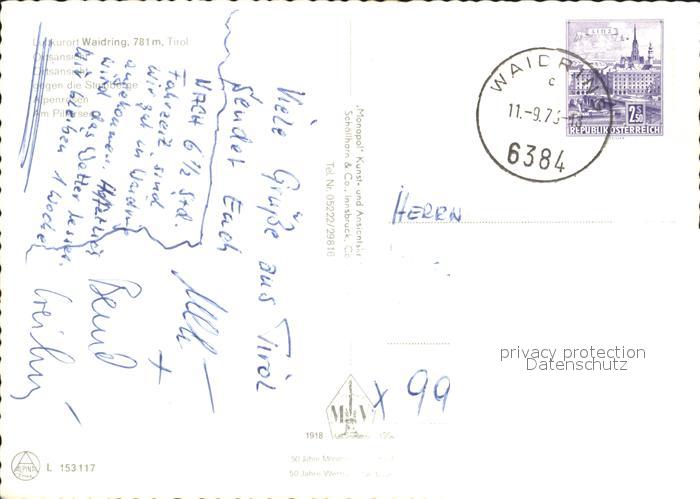 Luftkurort Waidring, 781 m, Tirol
Ortsansicht
Ortsansicht
gegen die
Alpenrosen
Am
Viele Grüße aus Tirol
sendet Euch
Nach 6 ½ Std.
Fahrzeit sind
wir gut in Waidring
angekommen. Hoffentlich
wird das Wetter besser.
Wir bleiben 1 Woche
Bernd
+
"Monopol" Kunst- und Ansichtskarten
Schöllhorn & Co., Innsbruck,
Tel. Nr. 05222/29816
LINZ
WAIDRING
c
11.-9.73-18
6384
2.50
S
REPUBLIK ÖSTERREICH
HERRN
x 99
1918
50 Jahre
50 Jahre
ALPINE
L 153117
privacy protection
Datenschutz